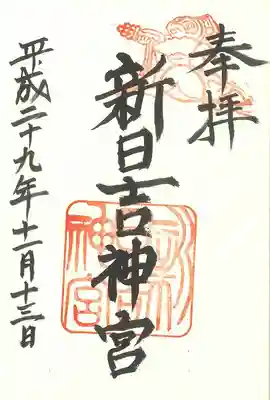 奉拝
新日吉神宮
平成二十九年十一月十三日